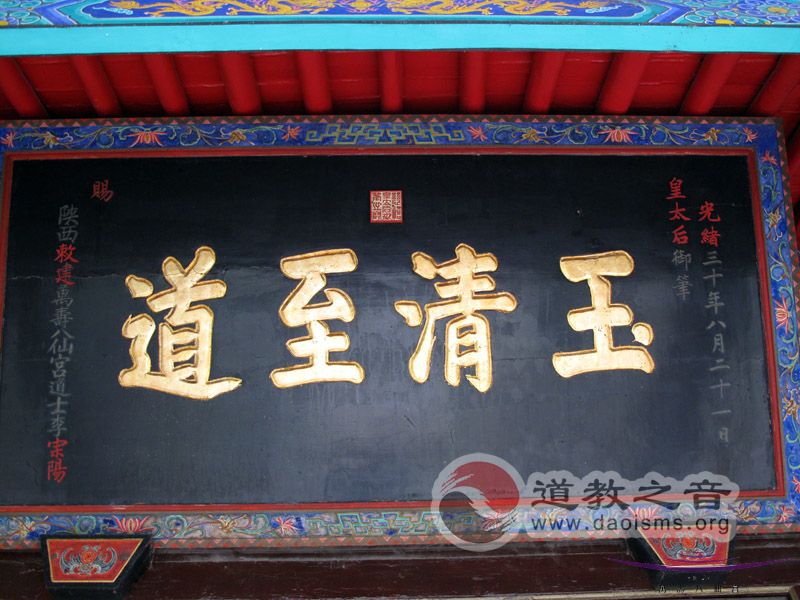 光緒三十年八月二十一日
皇太后御筆
玉清至道
賜
陝西敕建萬壽八仙宮道士李宗陽
道教之音
www.daoisms.org